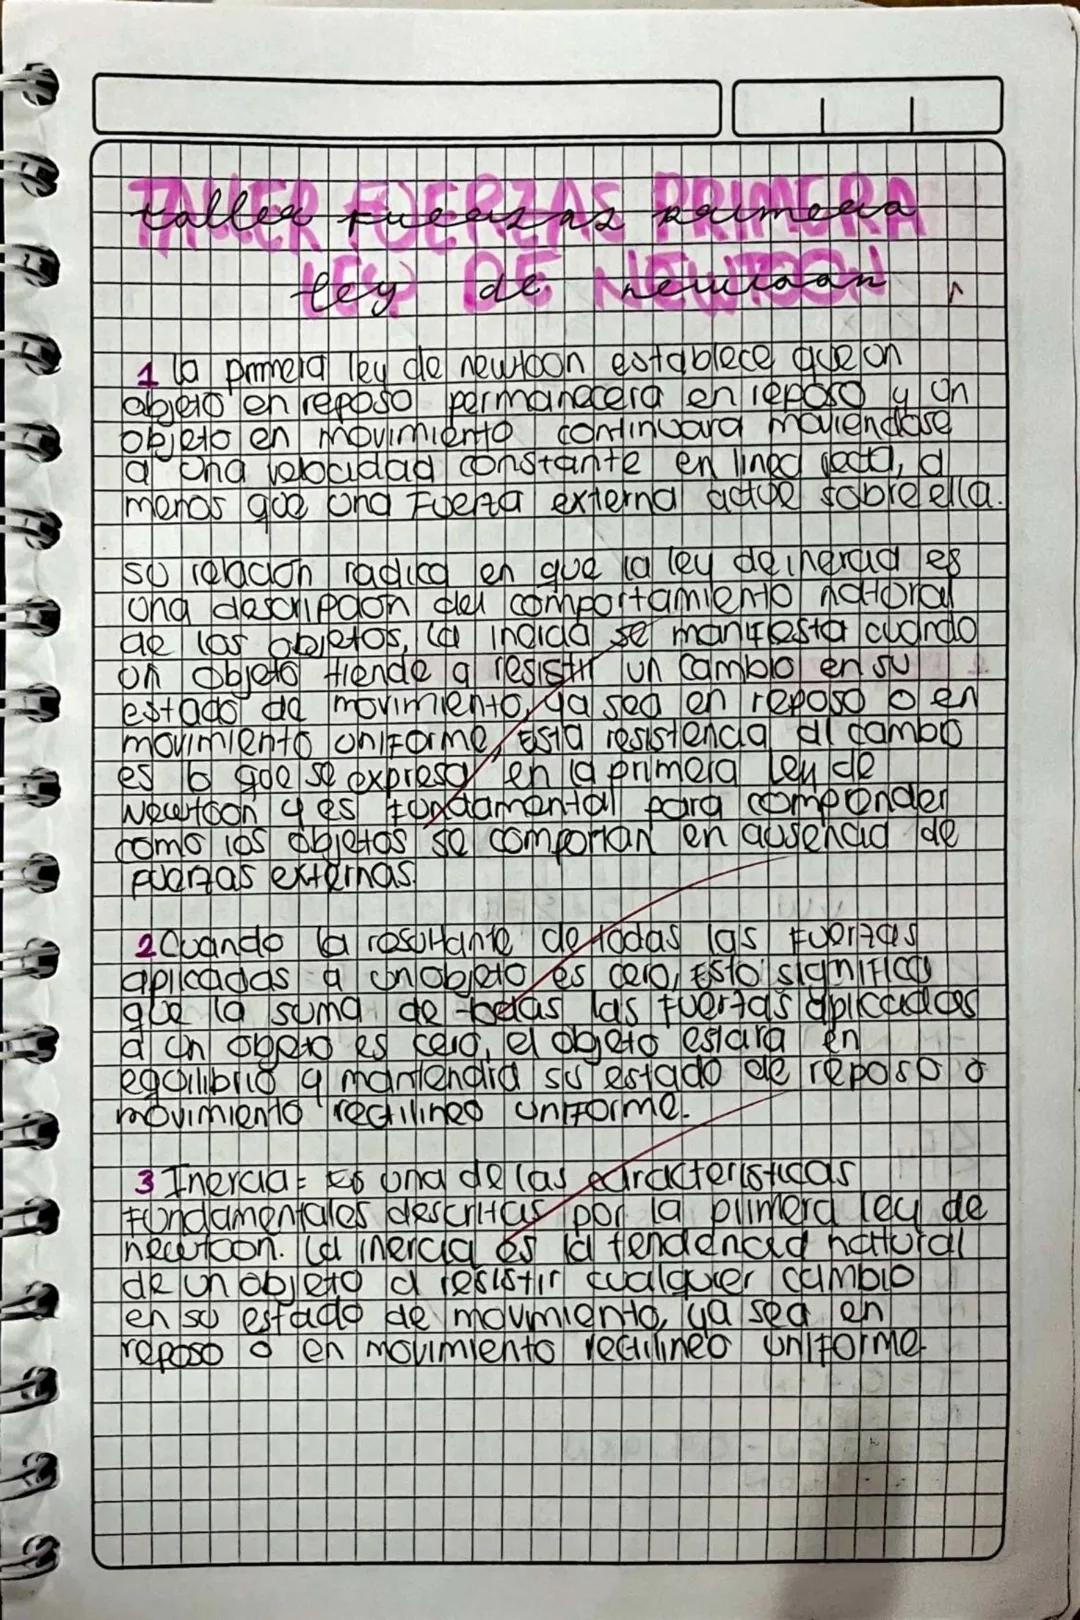 TALLER FUERZAS PRIMERA
taller fuerzas primera
LEY DE NEWTOON
ley de newtoon
1 la primera ley de newtoon establece que un
objeto en reposo permanecera en reposo y un
objeto en movimiento continuara moviendose
a una velocidad constante en linea recta, a
menos que una Fuerza externa actue sobre ella.
su relacion radica en que la ley de inercia es
una descripcion del comportamiento natural
de los objetos, la inercia se manifiesta cuando
un objeto tiende a resistir un cambio en su
estado de movimiento, ya sea en reposo o en
movimiento uniforme, Esta resistencia al cambio
es lo que se expresa en la primera Ley de
Newtoon y es fundamental para comprender
como los objetos se comportan en ausencia de
fuerzas externas.
2 Cuando la resultante de todas las fuerzas
aplicadas a un objeto es cero, Esto significa
que la suma de todas las fuerzas aplicadas
a un objeto es cero, el objeto estara en
equilibrio y mantendra su estado de reposo o
movimiento rectilineo uniforme.
3 Inercia= Es una de las caracteristicas
fundamentales descritas por la primera ley de
newtoon. La inercia es la tendencia natural
de un objeto a resistir cualquier cambio
en su estado de movimiento, ya sea en
reposo o en movimiento rectilineo uniforme.